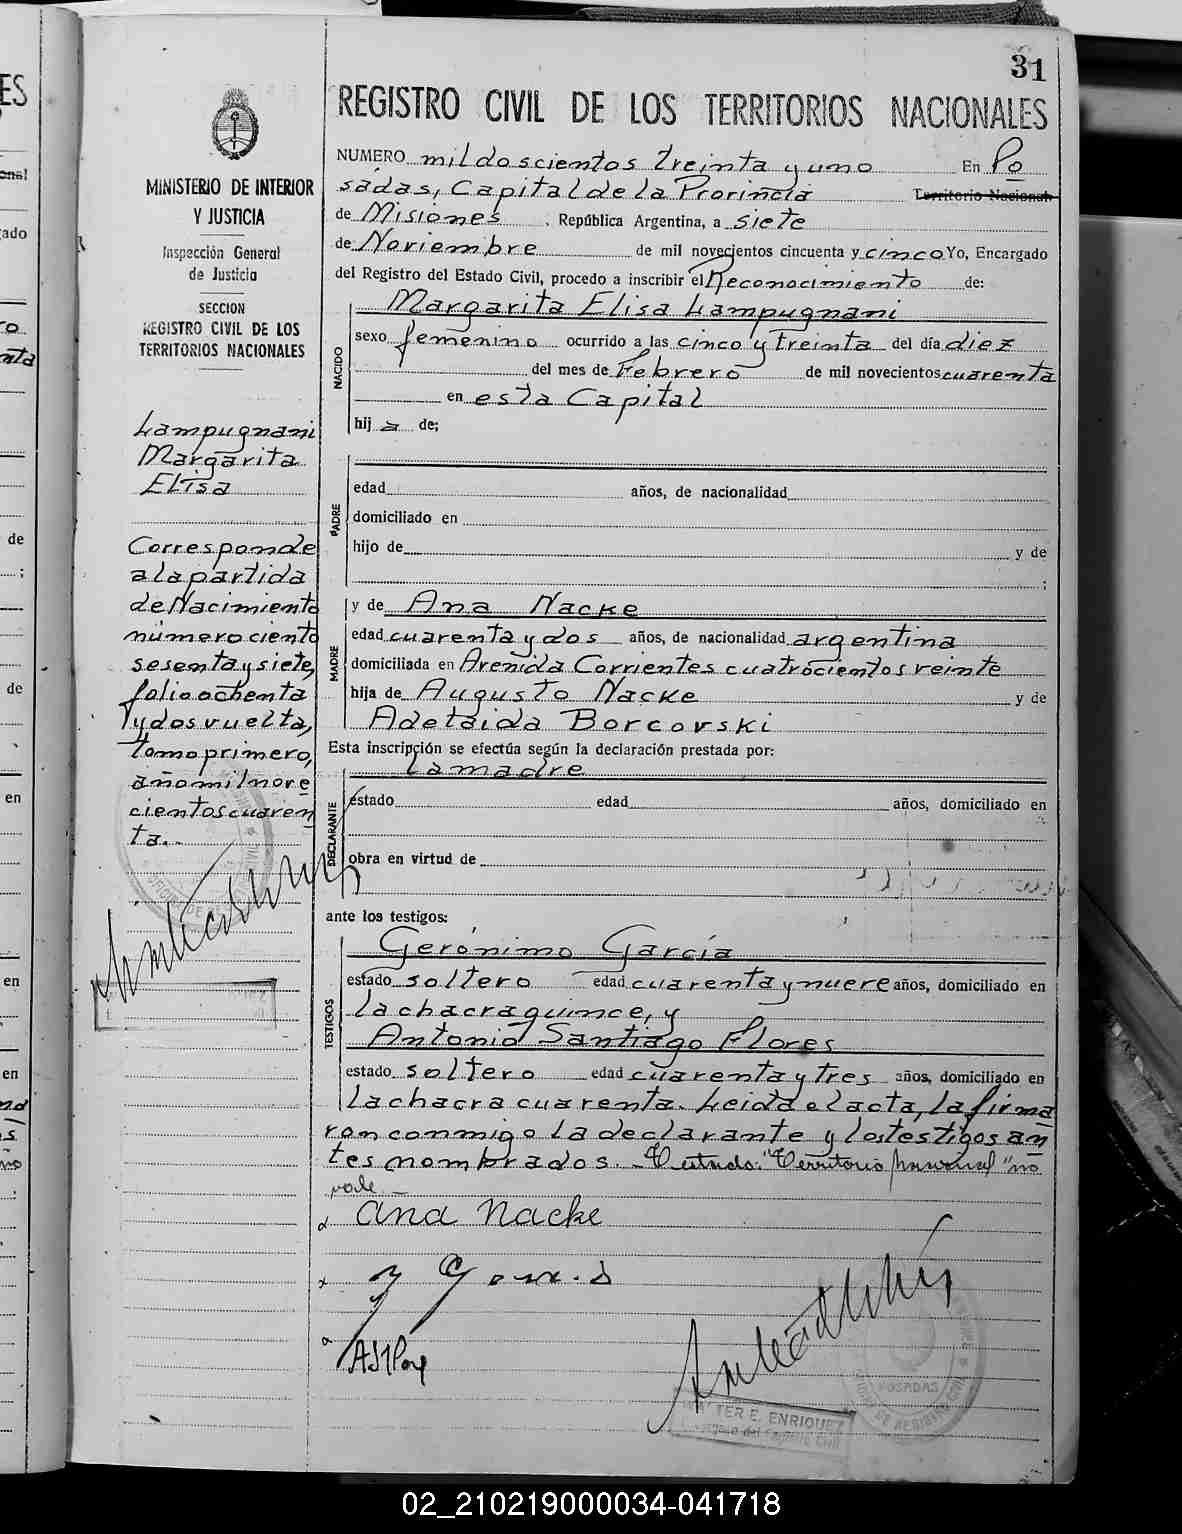 31
REGISTRO CIVIL DE LOS TERRITORIOS NACIONALES
MINISTERIO DE INTERIOR
Y JUSTICIA
Inspección General
de Justicia
SECCION
REGISTRO CIVIL DE LOS
TERRITORIOS NACIONALES
Lampugnani
Margarita
Elisa
Corresponde
a la partida
de Nacimiento
número ciento
sesenta y siete,
folio ochenta
y dos vuelta,
tomo primero,
año mil nove
cientos cuaren
ta..
NUMERO mil doscientos treinta y uno En Po
sadas, Capital de la Provincia Territorio Nacional
de Misiones, República Argentina, a siete
de Noviembre de mil novecientos cincuenta y cinco Yo, Encargado
del Registro del Estado Civil, procedo a inscribir el Reconocimiento de:
NACIDO
Margarita Elisa Lampugnani
sexo femenino ocurrido a las cinco y treinta del día diez
del mes de Febrero de mil novecientos cuarenta
en esta Capital
hij a de;
PADRE
edad años, de nacionalidad
domiciliado en
hijo de y de
;
MADRE
y de Ana Nacke
edad cuarenta y dos años, de nacionalidad argentina
domiciliada en Avenida Corrientes cuatrocientos veinte
hija de Augusto Nacke y de
Adelaida Borcovski
Esta inscripción se efectúa según la declaración prestada por:
La madre
DECLARANTE
estado edad años, domiciliado en
obra en virtud de
ante los testigos:
TESTIGOS
Gerónimo García
estado soltero edad cuarenta y nueve años, domiciliado en
la chacra quince, y
Antonio Santiago Flores
estado soltero edad cuarenta y tres años, domiciliado en
la chacra cuarenta. Leida el acta, la firma
ron conmigo la declarante y los testigos an
tes nombrados. - Testado: "Territorio Nacional" no
vale
Ana Nacke
POSADAS
TER E. ENRIQUEZ
Encargado del Registro Civil
02_210219000034-041718